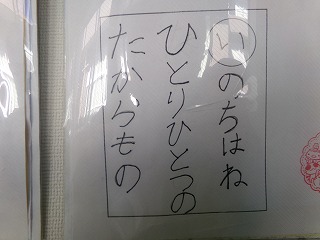 いのちはね
ひとりひとつの
たからもの